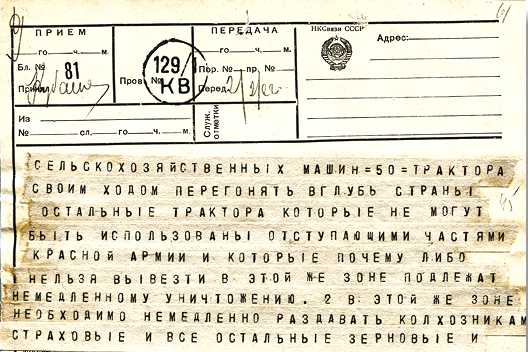 ПРИЕМ
ПЕРЕДАЧА
НКСвязи СССР
Адрес:
го ч. м.
го ч. м.
Бл. № 81
129/
Пор. № пр. №
Принял
Пров.
КВ
Перед.
Из
№ сл. го ч. м.
Служ. отметки
СЕЛЬСКОХОЗЯЙСТВЕННЫХ МАШИН=50=ТРАКТОРА
СВОИМ ХОДОМ ПЕРЕГОНЯТЬ ВГЛУБЬ СТРАНЫ
ОСТАЛЬНЫЕ ТРАКТОРА КОТОРЫЕ НЕ МОГУТ
БЫТЬ ИСПОЛЬЗОВАНЫ ОТСТУПАЮЩИМИ ЧАСТЯМИ
КРАСНОЙ АРМИИ И КОТОРЫЕ ПОЧЕМУ ЛИБО
НЕЛЬЗЯ ВЫВЕЗТИ В ЭТОЙ ЖЕ ЗОНЕ ПОДЛЕЖАТ
НЕМЕДЛЕННОМУ УНИЧТОЖЕНИЮ. 2 В ЭТОЙ ЖЕ ЗОНЕ
НЕОБХОДИМО НЕМЕДЛЕННО РАЗДАВАТЬ КОЛХОЗНИКАМ
СТРАХОВЫЕ И ВСЕ ОСТАЛЬНЫЕ ЗЕРНОВЫЕ И